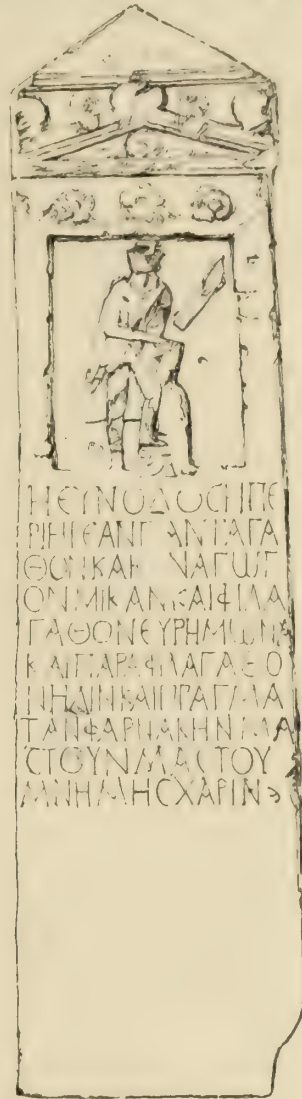 ΗϹΥΝΟΔΟϹΗΠΕ
ΡΙΙΕΡΕΑΝΠΑΝΤΑΓΑ
ΘΟΝΚΑΙϹΥΝΑΓΩΓ
ΟΝΜΙΚΑΝΚΑΙΦΙΛΑ
ΓΑΘΟΝΕΥΡΗΜΩΝΑ
ΚΑΙΠΑΡΑΦΙΛΑΓΑΘΟ
ΚΑΙΠΡΑΓΜΑ
ΤΑΝΦΑΡΝΑΚΗΝΜΑ
ϹΤΟΥΝΜΑϹΤΟΥ
ΜΝΗΜΗϹΧΑΡΙΝ